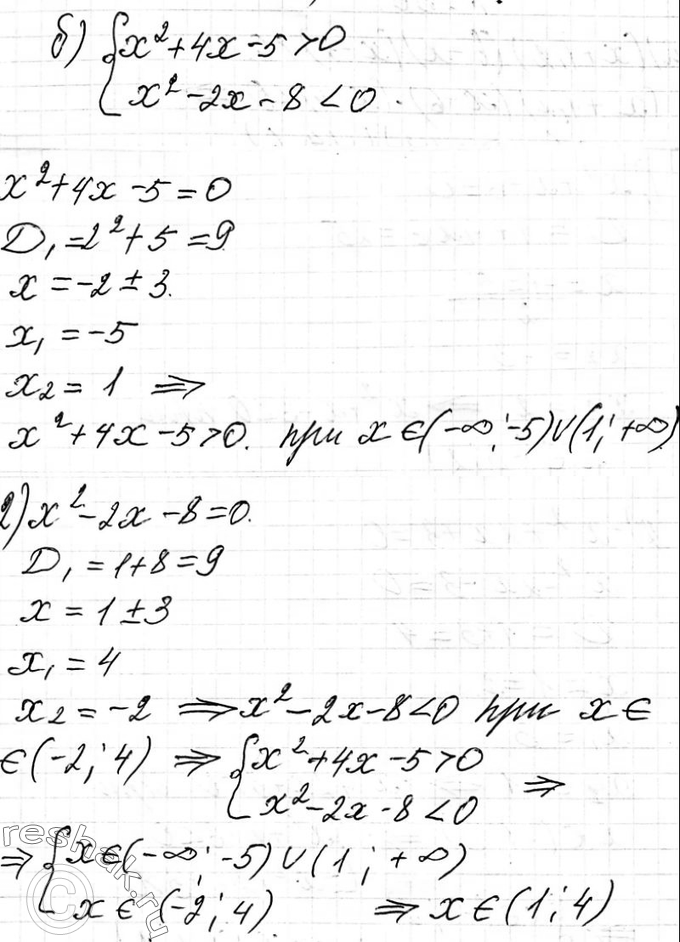 б) { x² + 4x - 5 > 0
x² - 2x - 8 < 0.
x² + 4x - 5 = 0
D₁ = 2² + 5 = 9
x = -2 ± 3.
x₁ = -5
x₂ = 1 ⇒
x² + 4x - 5 > 0. при x ∈ (-∞; -5) ∪ (1; +∞)
2) x² - 2x - 8 = 0.
D₁ = 1 + 8 = 9
x = 1 ± 3
x₁ = 4
x₂ = -2 ⇒ x² - 2x - 8 < 0 при x ∈
∈ (-2; 4) ⇒ { x² + 4x - 5 > 0
x² - 2x - 8 < 0 ⇒
⇒ { x ∈ (-∞; -5) ∪ (1; +∞)
x ∈ (-2; 4) ⇒ x ∈ (1; 4)
reshak.ru